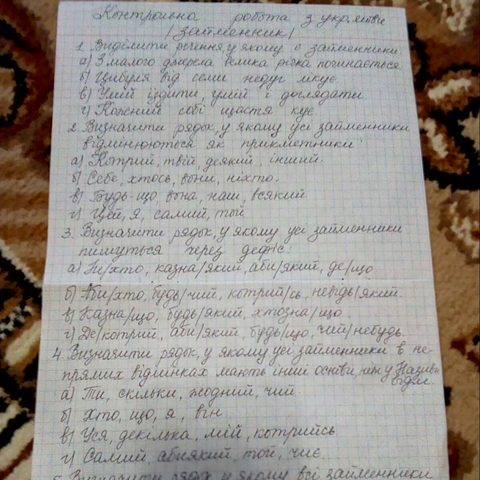 Контрольна робота з укр.мови
/займенник/
1. Виділити речення, у якому є займенники
а) З малого джерела велика річка починається
б) Цибуля від семи недуг лікує.
в) Умій їздити, умій і доглядати
г) Кожений собі щастя кує
2. Визначити рядок, у якому усі займенники
відмінюються як прикметники
а) Котрий, твій, деякий, інший.
б) Себе, хтось, вони, ніхто.
в) Будь-що, вона, наш, всякий
г) Цей, я, самий, той
3. Визначити рядок, у якому усі займенники
пишуться через дефіс:
а) Ні/хто, казна/який, аби/який, де/що
б) Аби/хто, будь/чий, котрий/сь, невідь/який
в) Казна/що, будь/який, хтозна/що
г) Де/котрий, аби/який, будь/що, чий/небудь.
4. Визначити рядок, у якому усі займенники в не-
прямих відмінках мають інші основи, ніж у Називн.
відм.
а) Ти, скільки, жодний, чий.
б) Хто, що, я, він
в) Уся, декілька, мій, котрийсь.
г) Самий, абиякий, той, чиє.
5. Визначити рядок, у якому всі займенники